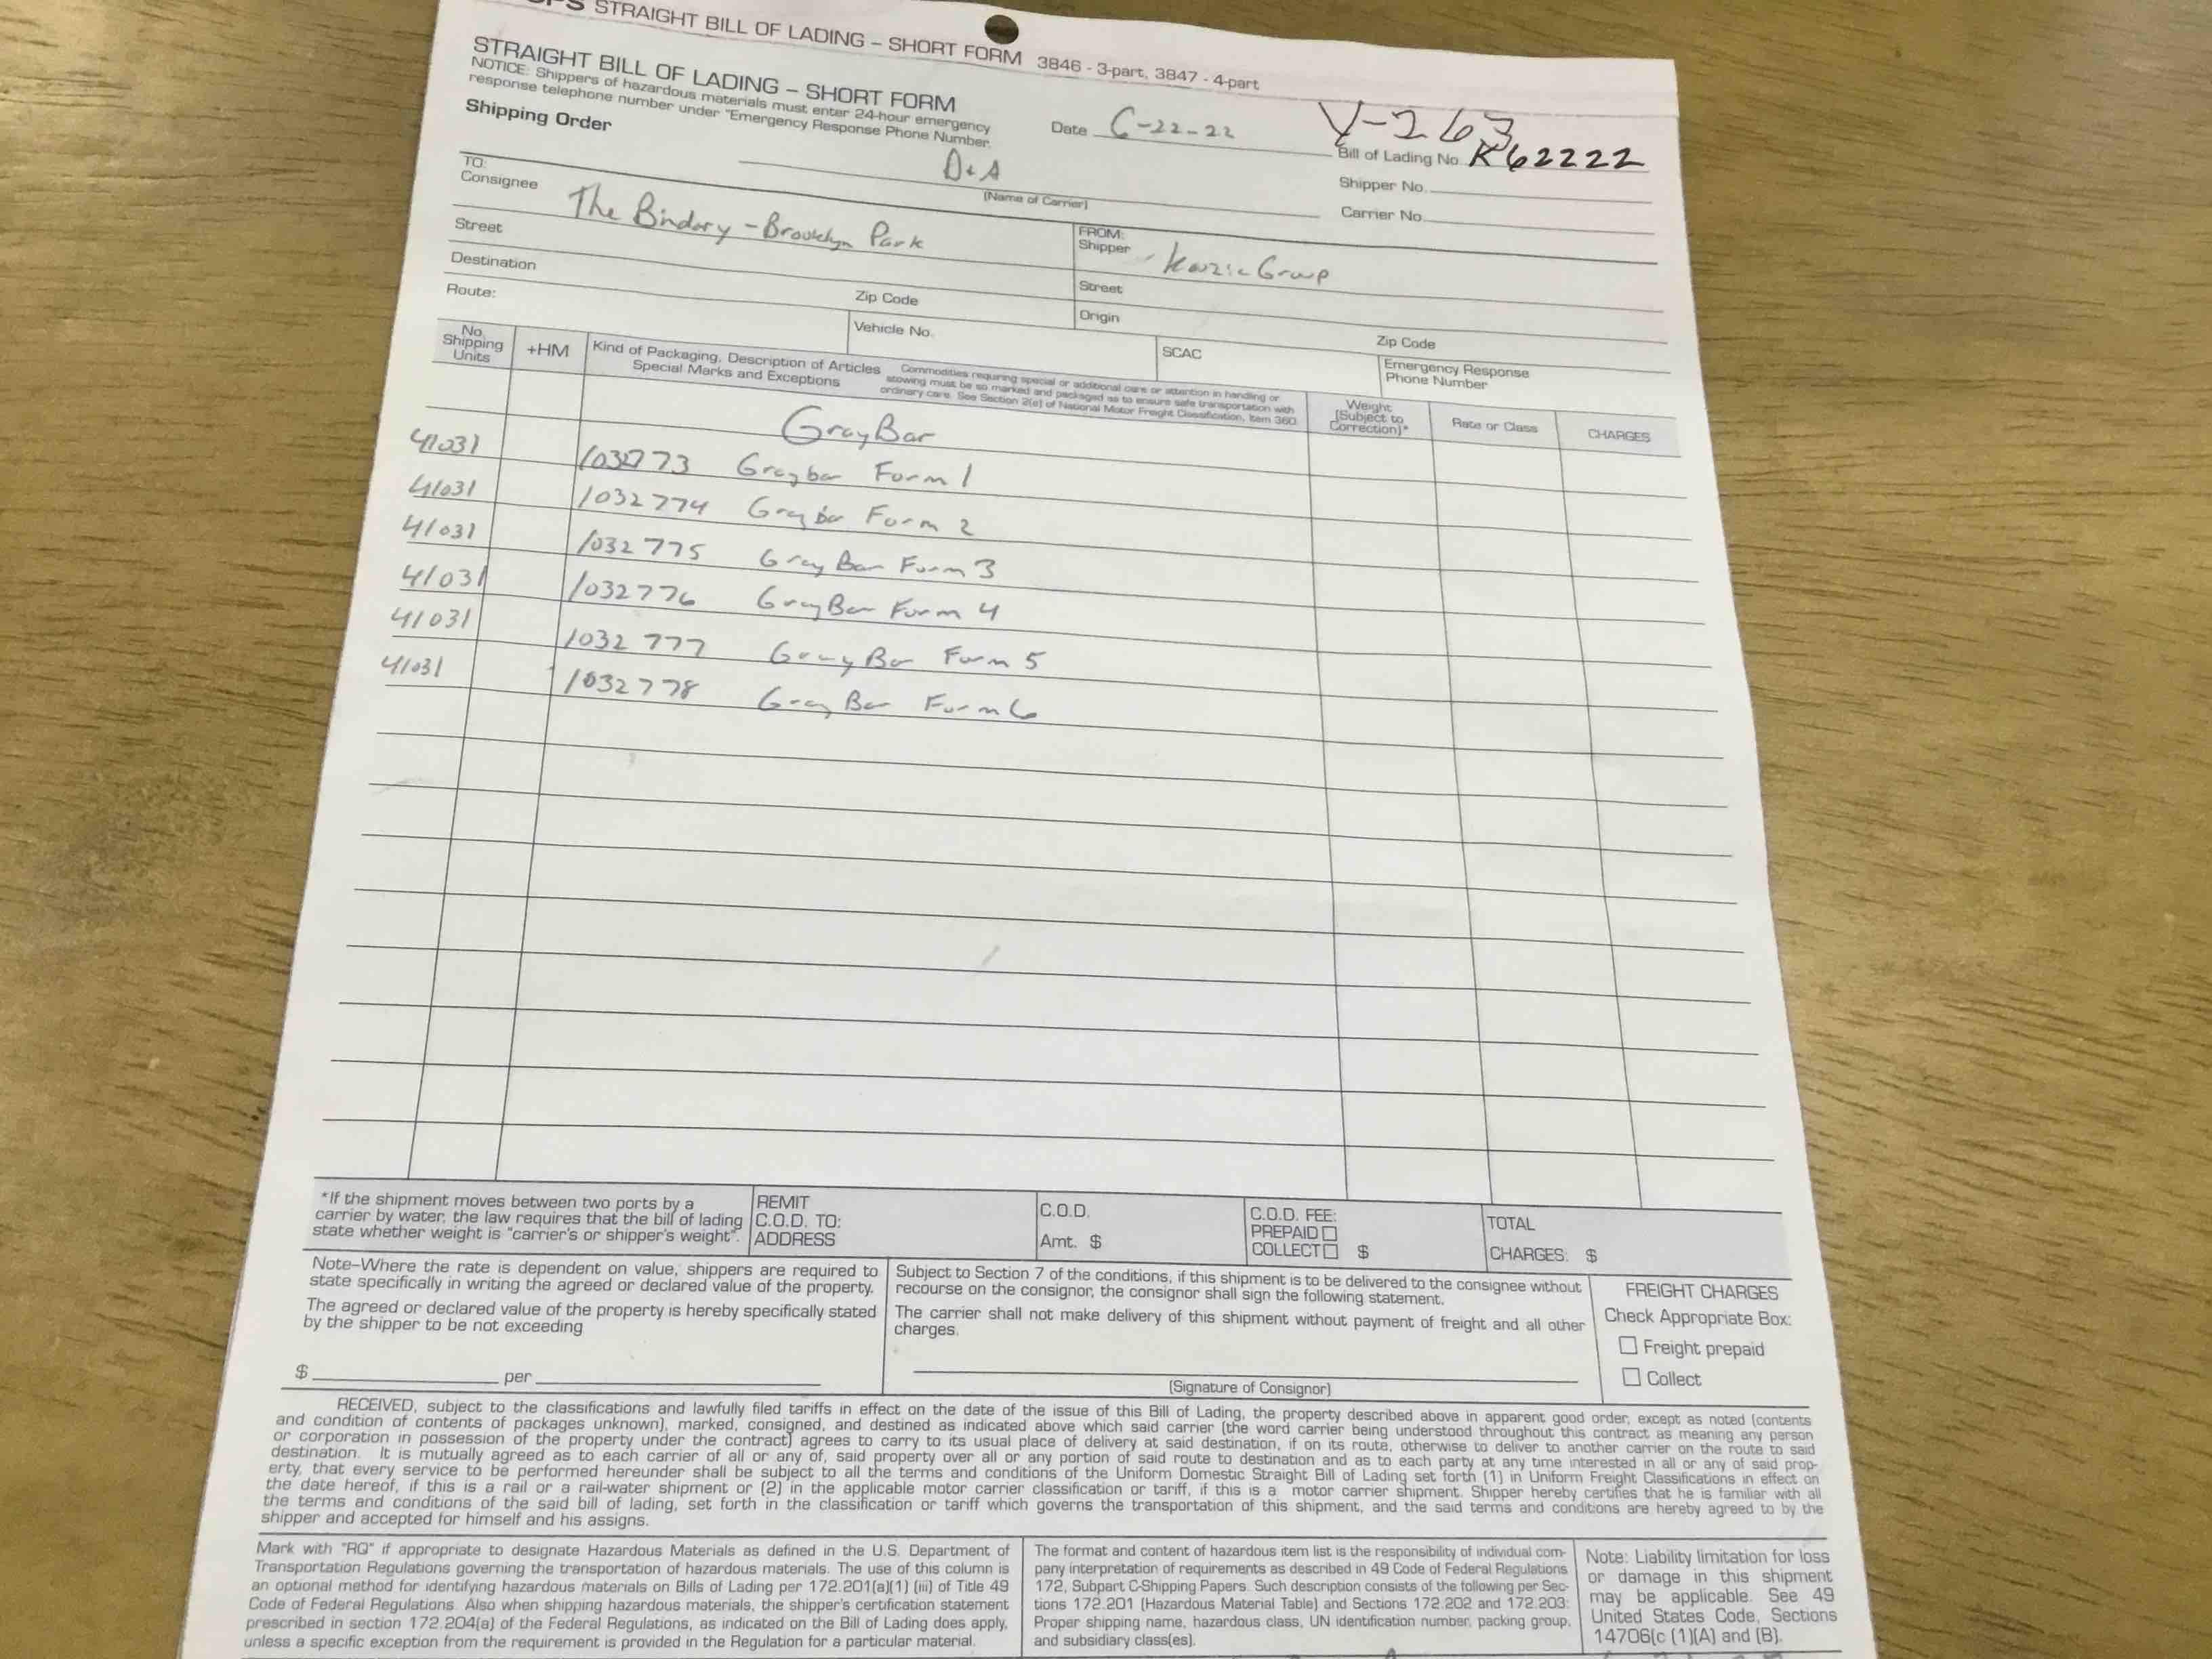 STRAIGHT BILL OF LADING – SHORT FORM 3846 - 3-part, 3847 - 4-part
STRAIGHT BILL OF LADING – SHORT FORM
NOTICE: Shippers of hazardous materials must enter 24-hour emergency
response telephone number under "Emergency Response Phone Number.
Shipping Order
Date 6-22-22
V-263
Bill of Lading No. K62222
Shipper No.
Carrier No.
D+A
(Name of Carrier)
TO:
Consignee The Bindery - Brooklyn Park
Street
Destination
Zip Code
Route:
Vehicle No.
FROM:
Shipper Group
Street
Origin
Zip Code
SCAC
Emergency Response
Phone Number
No.
Shipping
Units
+HM
Kind of Packaging, Description of Articles
Special Marks and Exceptions
Commodities requiring special or additional care or attention in handling or
stowing must be so marked and packaged as to ensure safe transportation with
ordinary care. See Section 2(e) of National Motor Freight Classification, Item 360.
Weight
(Subject to
Correction)*
Rate or Class
CHARGES
GrayBar
41031 1032773 Graybar Form 1
41031 1032774 Graybar Form 2
41031 1032775 GrayBar Form 3
41031 1032776 GrayBar Form 4
41031 1032777 GrayBar Form 5
41031 1032778 GrayBar Form 6
*If the shipment moves between two ports by a
carrier by water, the law requires that the bill of lading
state whether weight is "carrier's or shipper's weight".
REMIT
C.O.D. TO:
ADDRESS
C.O.D.
Amt. $
C.O.D. FEE:
PREPAID
COLLECT $
TOTAL
CHARGES: $
Note–Where the rate is dependent on value, shippers are required to
state specifically in writing the agreed or declared value of the property.
The agreed or declared value of the property is hereby specifically stated
by the shipper to be not exceeding
$ per
Subject to Section 7 of the conditions, if this shipment is to be delivered to the consignee without
recourse on the consignor, the consignor shall sign the following statement.
The carrier shall not make delivery of this shipment without payment of freight and all other
charges.
(Signature of Consignor)
FREIGHT CHARGES
Check Appropriate Box:
Freight prepaid
Collect
RECEIVED, subject to the classifications and lawfully filed tariffs in effect on the date of the issue of this Bill of Lading, the property described above in apparent good order, except as noted (contents
and condition of contents of packages unknown), marked, consigned, and destined as indicated above which said carrier (the word carrier being understood throughout this contract as meaning any person
or corporation in possession of the property under the contract) agrees to carry to its usual place of delivery at said destination, if on its route, otherwise to deliver to another carrier on the route to said
destination. It is mutually agreed as to each carrier of all or any of, said property over all or any portion of said route to destination and as to each party at any time interested in all or any of said prop-
erty, that every service to be performed hereunder shall be subject to all the terms and conditions of the Uniform Domestic Straight Bill of Lading set forth (1) in Uniform Freight Classifications in effect on
the date hereof, if this is a rail or a rail-water shipment or (2) in the applicable motor carrier classification or tariff, if this is a motor carrier shipment. Shipper hereby certifies that he is familiar with all
the terms and conditions of the said bill of lading, set forth in the classification or tariff which governs the transportation of this shipment, and the said terms and conditions are hereby agreed to by the
shipper and accepted for himself and his assigns.
Mark with "RQ" if appropriate to designate Hazardous Materials as defined in the U.S. Department of
Transportation Regulations governing the transportation of hazardous materials. The use of this column is
an optional method for identifying hazardous materials on Bills of Lading per 172.201(a)(1) (iii) of Title 49
Code of Federal Regulations. Also when shipping hazardous materials, the shipper's certification statement
prescribed in section 172.204(a) of the Federal Regulations, as indicated on the Bill of Lading does apply,
unless a specific exception from the requirement is provided in the Regulation for a particular material.
The format and content of hazardous item list is the responsibility of individual com-
pany interpretation of requirements as described in 49 Code of Federal Regulations
172, Subpart C-Shipping Papers. Such description consists of the following per Sec-
tions 172.201 (Hazardous Material Table) and Sections 172.202 and 172.203:
Proper shipping name, hazardous class, UN identification number, packing group,
and subsidiary class(es).
Note: Liability limitation for loss
or damage in this shipment
may be applicable. See 49
United States Code, Sections
14706(c (1)(A) and (B).